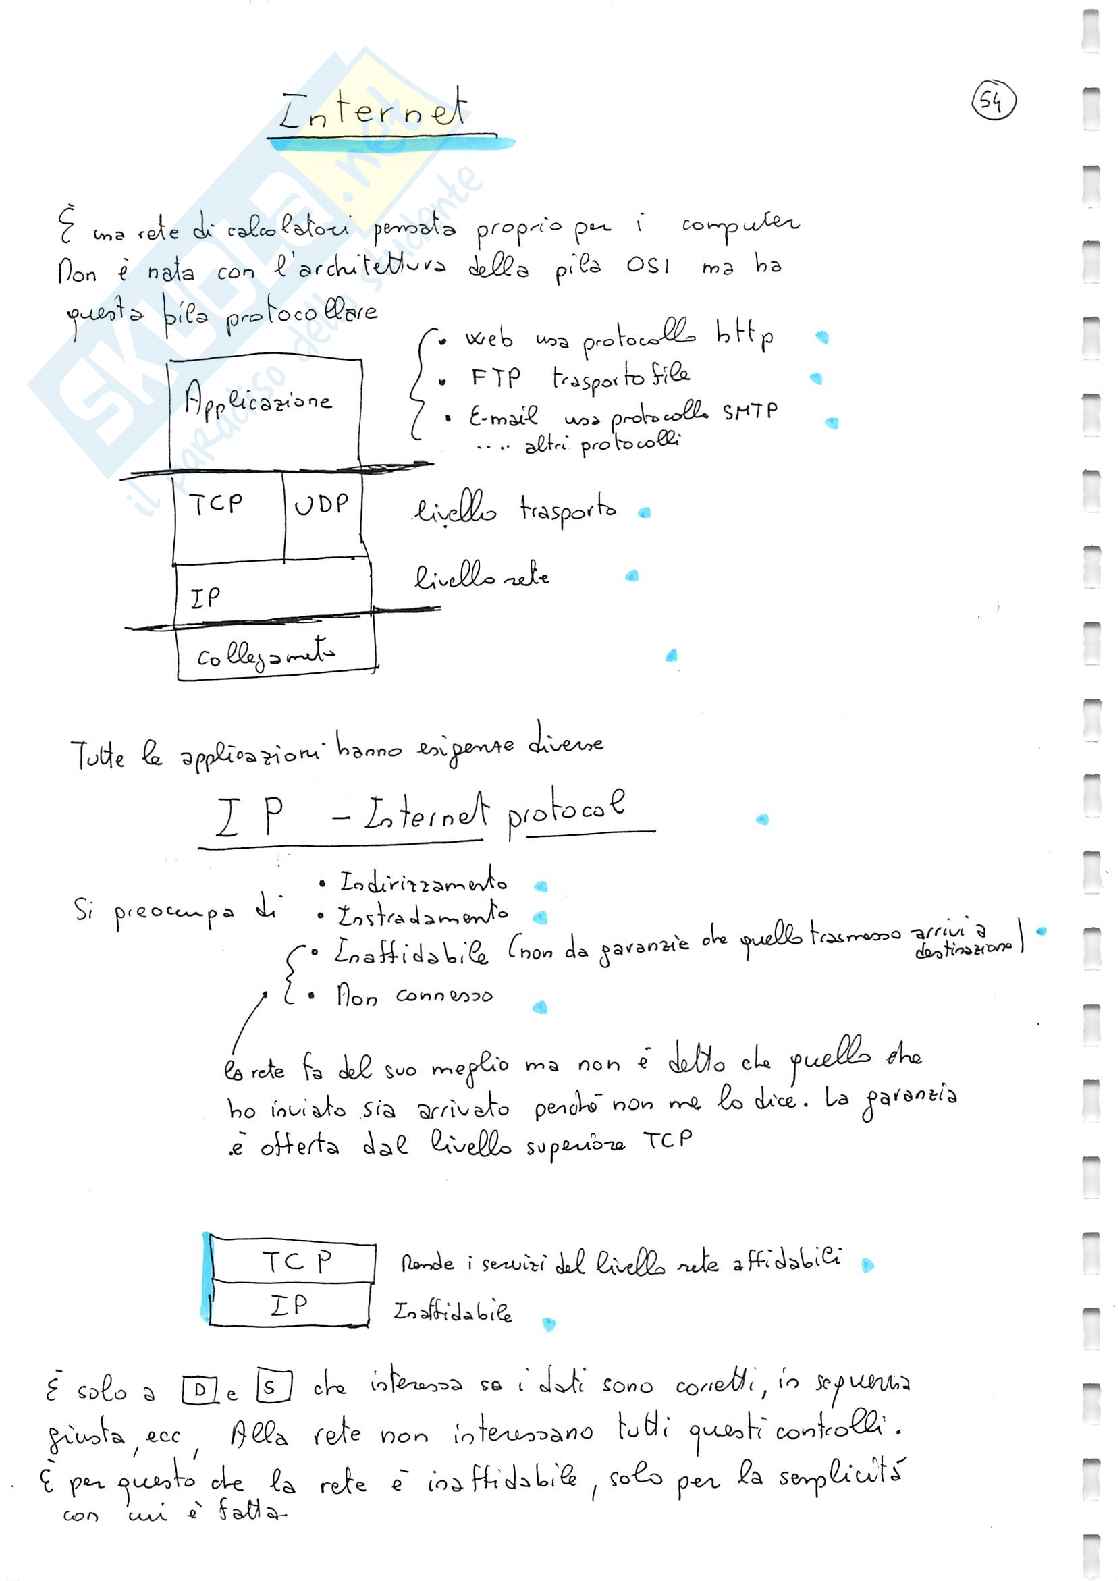 Internet
54
È una rete di calcolatori pensata proprio per i computer
Non è nata con l'architettura della pila OSI ma ha
questa pila protocollare
• Web usa protocollo http
• FTP trasporto file
• E-mail usa protocollo SMTP
.... altri protocolli
Applicazione
TCP UDP livello trasporto
IP livello rete
Collegamento
Tutte le applicazioni hanno esigenze diverse
IP - Internet protocol
Si preoccupa di
• Indirizzamento
• Instradamento
• Inaffidabile (non da garanzie che quello trasmesso arrivi a
destinazione)
• Non connesso
la rete fa del suo meglio ma non è detto che quello che
ho inviato sia arrivato perché non me lo dice. La garanzia
è offerta dal livello superiore TCP
TCP Rende i servizi del livello rete affidabili
IP Inaffidabile
È solo a D e S che interessa se i dati sono corretti, in sequenza
giusta, ecc, Alla rete non interessano tutti questi controlli.
È per questo che la rete è inaffidabile, solo per la semplicità
con cui è fatta.
SKUOLA.net
il paradiso dello studente